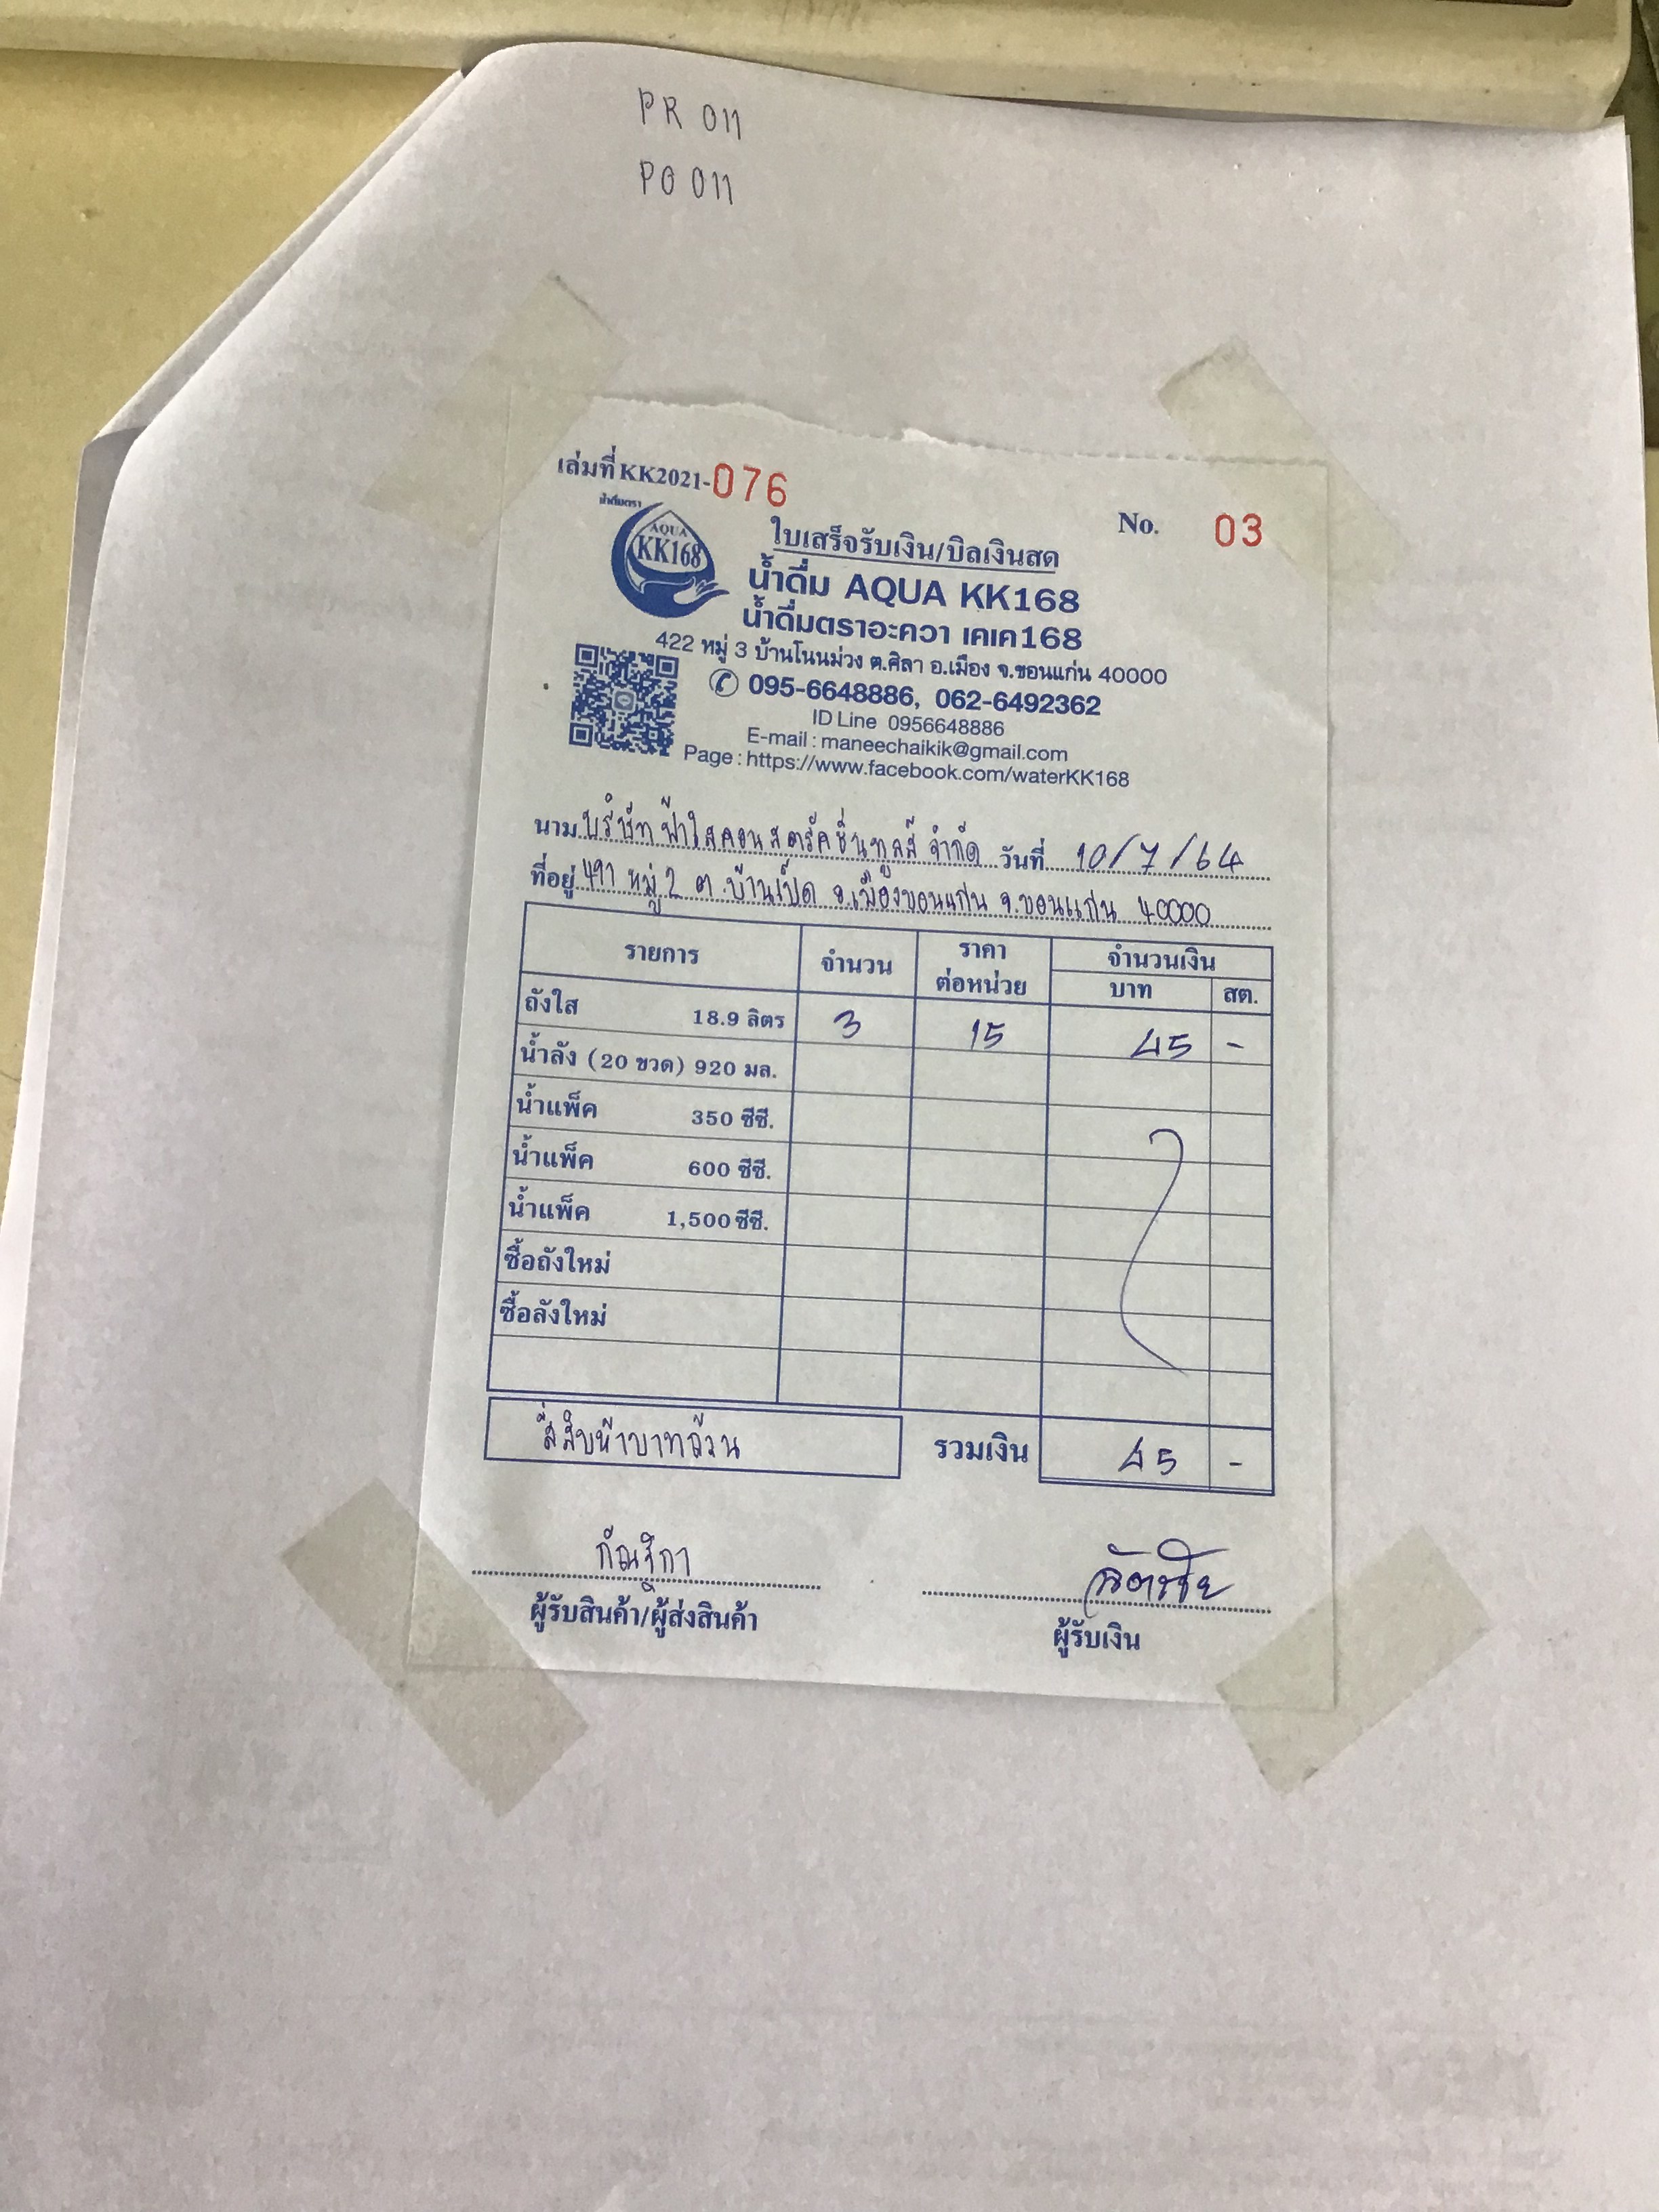 PR 011
PO 011
เล่มที่ KK2021-076
No. 03
ใบเสร็จรับเงิน/บิลเงินสด
AQUA
KK168
น้ำดื่ม AQUA KK168
น้ำดื่มตราอะควา เคเค168
422 หมู่ 3 บ้านโนนม่วง ต.ศิลา อ.เมือง จ.ขอนแก่น 40000
095-6648886, 062-6492362
ID Line 0956648886
E-mail : maneechaikik@gmail.com
Page : https://www.facebook.com/waterKK168
นาม บริษัท ฟ้าใสคอนสตรัคชั่น จำกัด วันที่ 10/7/64
ที่อยู่ หมู่ 2 ต.บ้านเป็ด อ.เมืองขอนแก่น จ.ขอนแก่น 40000
รายการ จำนวน ราคาต่อหน่วย จำนวนเงิน
บาท สต.
ถังใส 18.9 ลิตร 3 15 45 -
น้ำลัง (20 ขวด) 920 มล.
น้ำแพ็ค 350 ซีซี.
น้ำแพ็ค 600 ซีซี.
น้ำแพ็ค 1,500 ซีซี.
ซื้อถังใหม่
ซื้อลังใหม่
สี่สิบห้าบาทถ้วน รวมเงิน 45 -
กัณฐิกา
ผู้รับสินค้า/ผู้ส่งสินค้า ผู้รับเงิน